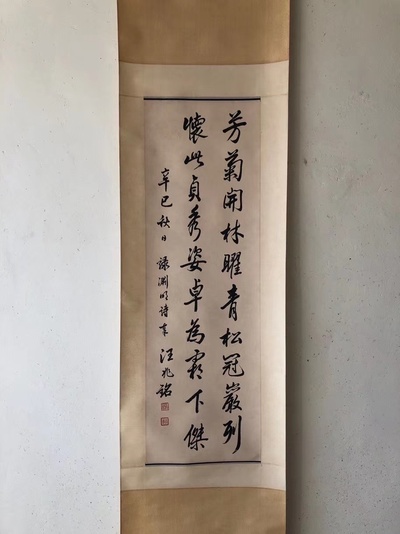 芳菊開林耀青松冠巖列
懷此貞秀姿卓為霜下傑
辛巳秋日 錄淵明詩章 汪兆銘